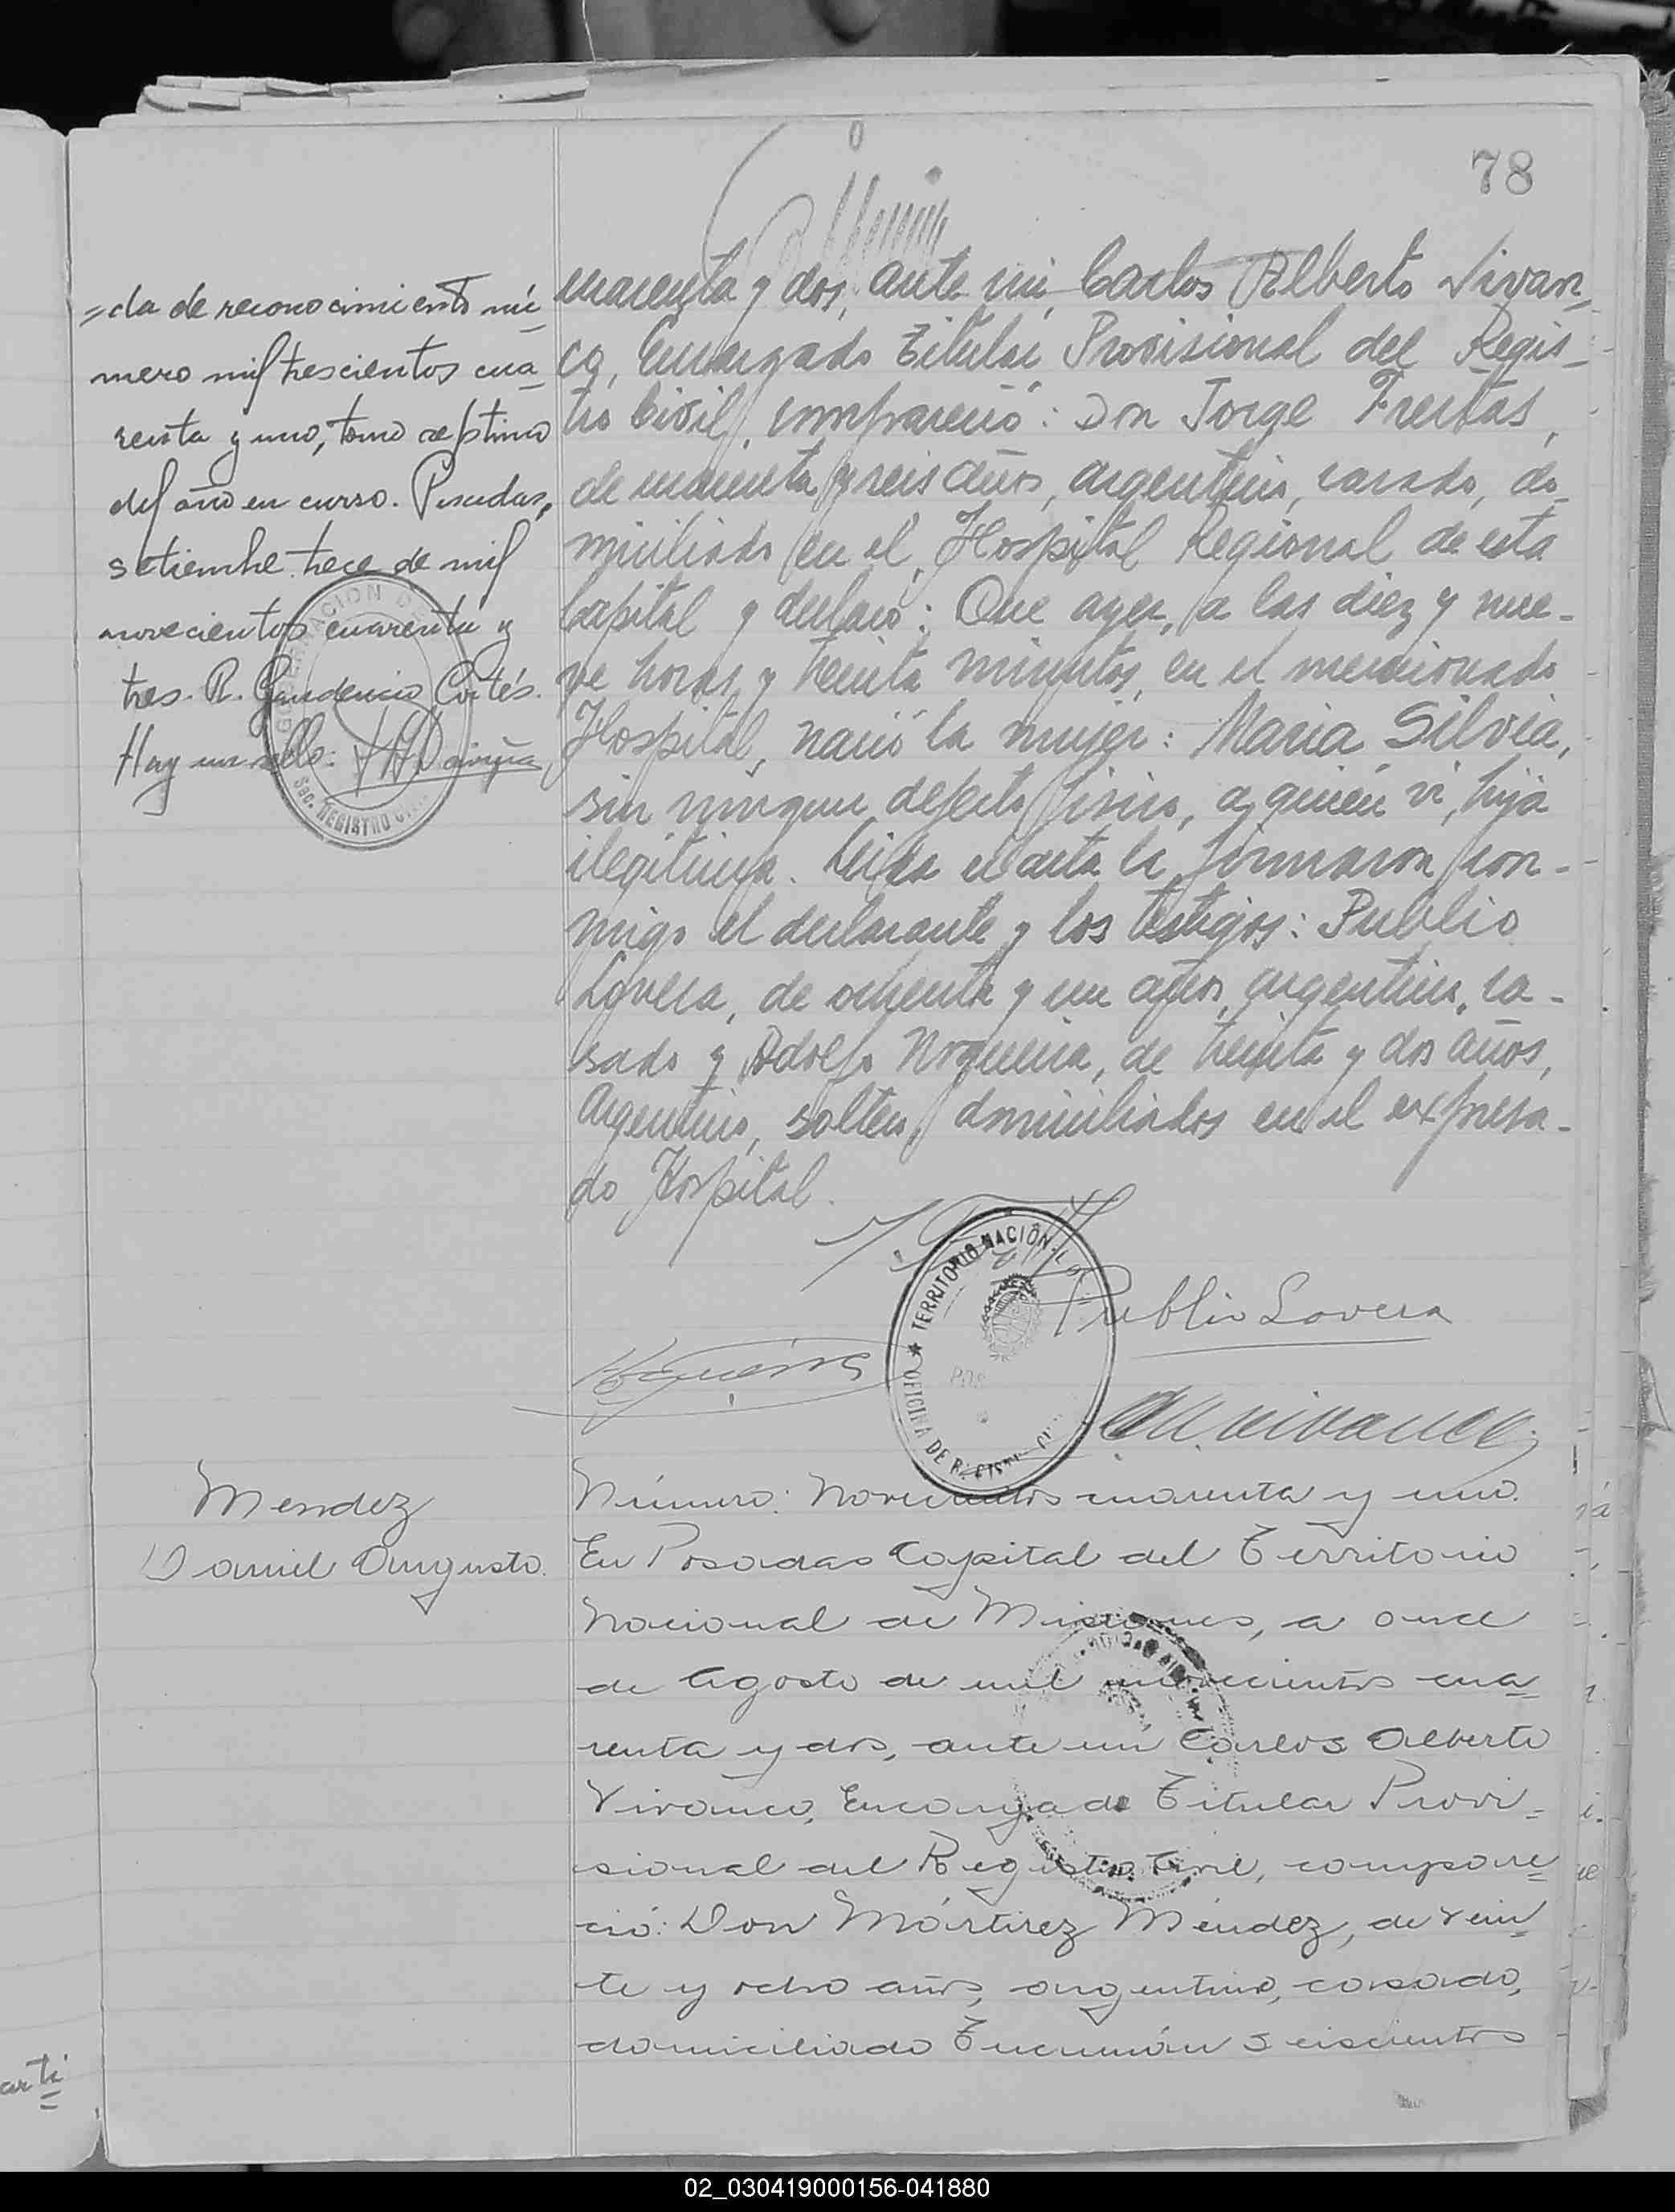 78
=da de reconocimiento nú
mero mil trescientos cua
renta y uno, tomo septimo
del año en curso. Posadas,
setiembre trece de mil
novecientos cuarenta y
tres. R. Gaudencio Cortés.
Hay un sello:
cuarenta y dos, ante mi, Carlos Alberto Vivan-
co, Encargado Titular Provisional del Regis-
tro Civil, compareció: Don Jorge Freitas,
de cuarenta y seis años, argentino, casado, do-
miciliado en el Hospital Regional de esta
Capital y declaró: Que ayer, a las diez y nue-
ve horas y treinta minutos, en el mencionado
Hospital, nació la mujer: Maria Silvia,
sin ningun defecto fisico, a quién vi, hija
ilegitima. Leida el acta la firmaron con-
migo el declarante y los testigos: Publio
Lovera, de ochenta y un años, argentino, ca-
sado y Adolfo Noguera, de treinta y dos años,
Argentino, soltero, domiciliados en el expresa-
do Hospital.
TERRITORIO NACIONAL
Publio Lovera
OFICINA DE REGISTRO
Mendez
Daniel Augusto.
Número: Novecientos cuarenta y uno.
En Posadas Capital del Territorio
Nacional de Misiones, a once
de Agosto de mil novecientos cua=
renta y dos, ante mi Carlos Alberto
Vivanco, Encargado Titular Provi=
sional del Registro Civil, compare=
ció: Don Mártirez Méndez, de vein=
te y ocho años, argentino, casado,
domiciliado Tucumán seiscientos
arti
02_030419000156-041880